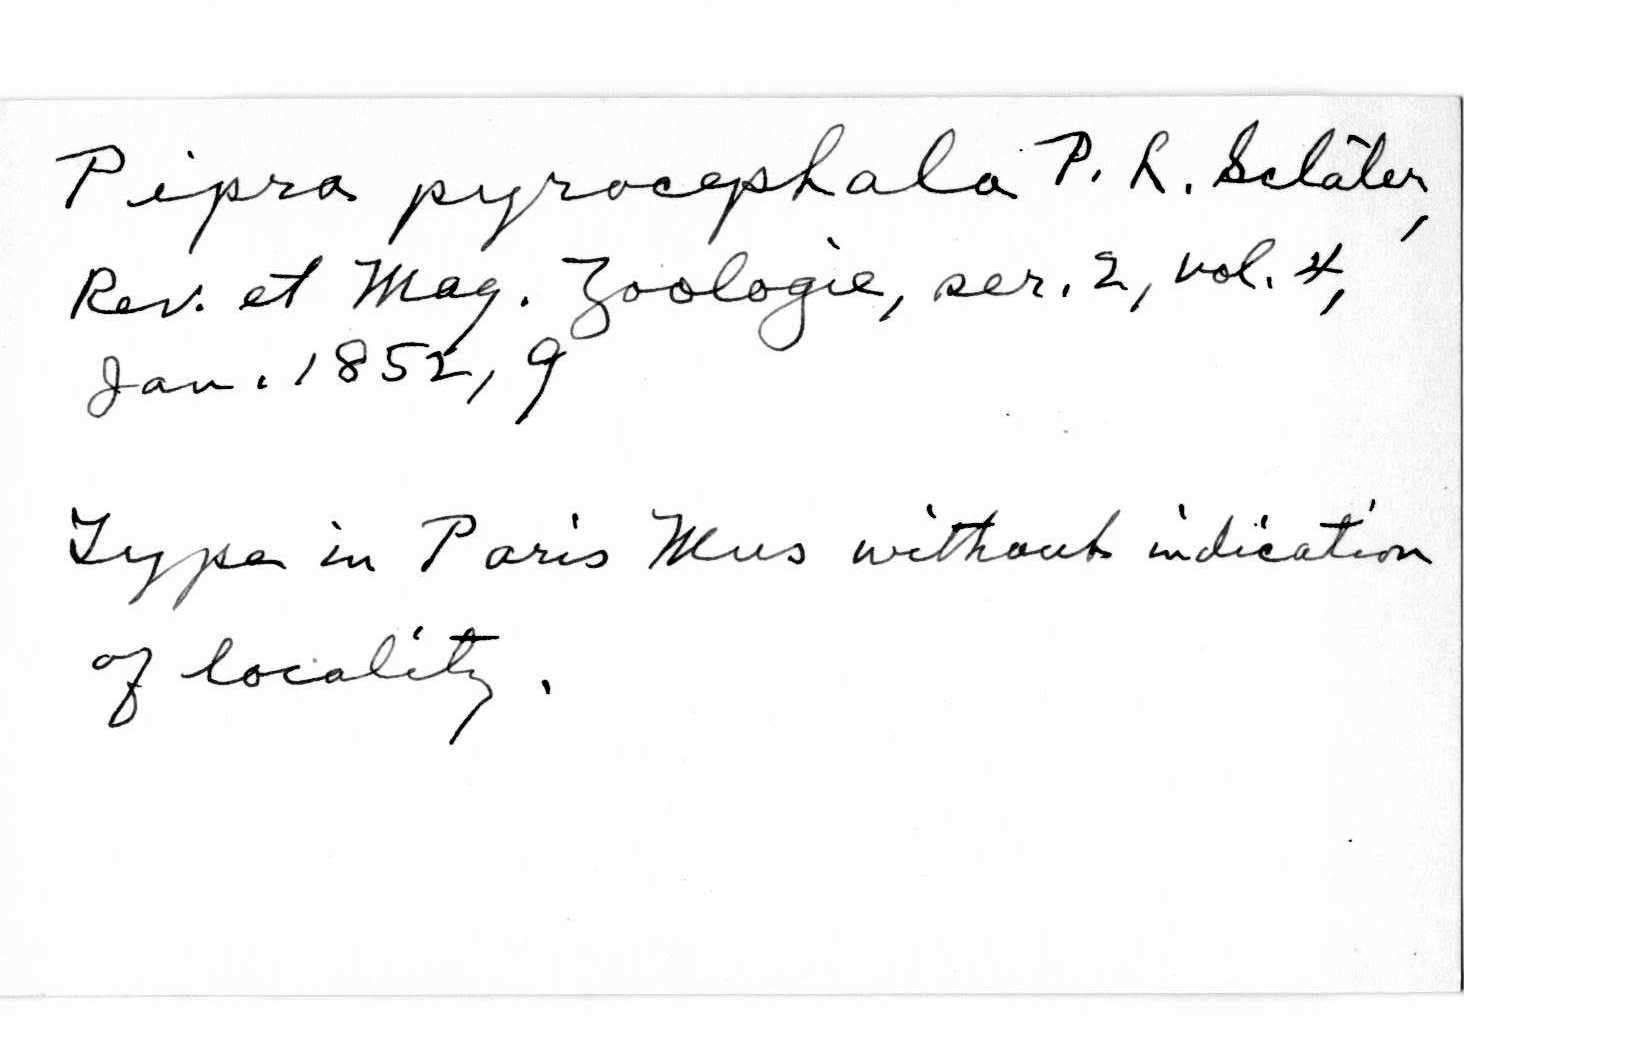 Pipra pyrocephala P. L. Sclater,
Rev. et Mag. Zoologie, ser. 2, vol. 4,
Jan. 1852, 9
Type in Paris Mus without indication
of locality.